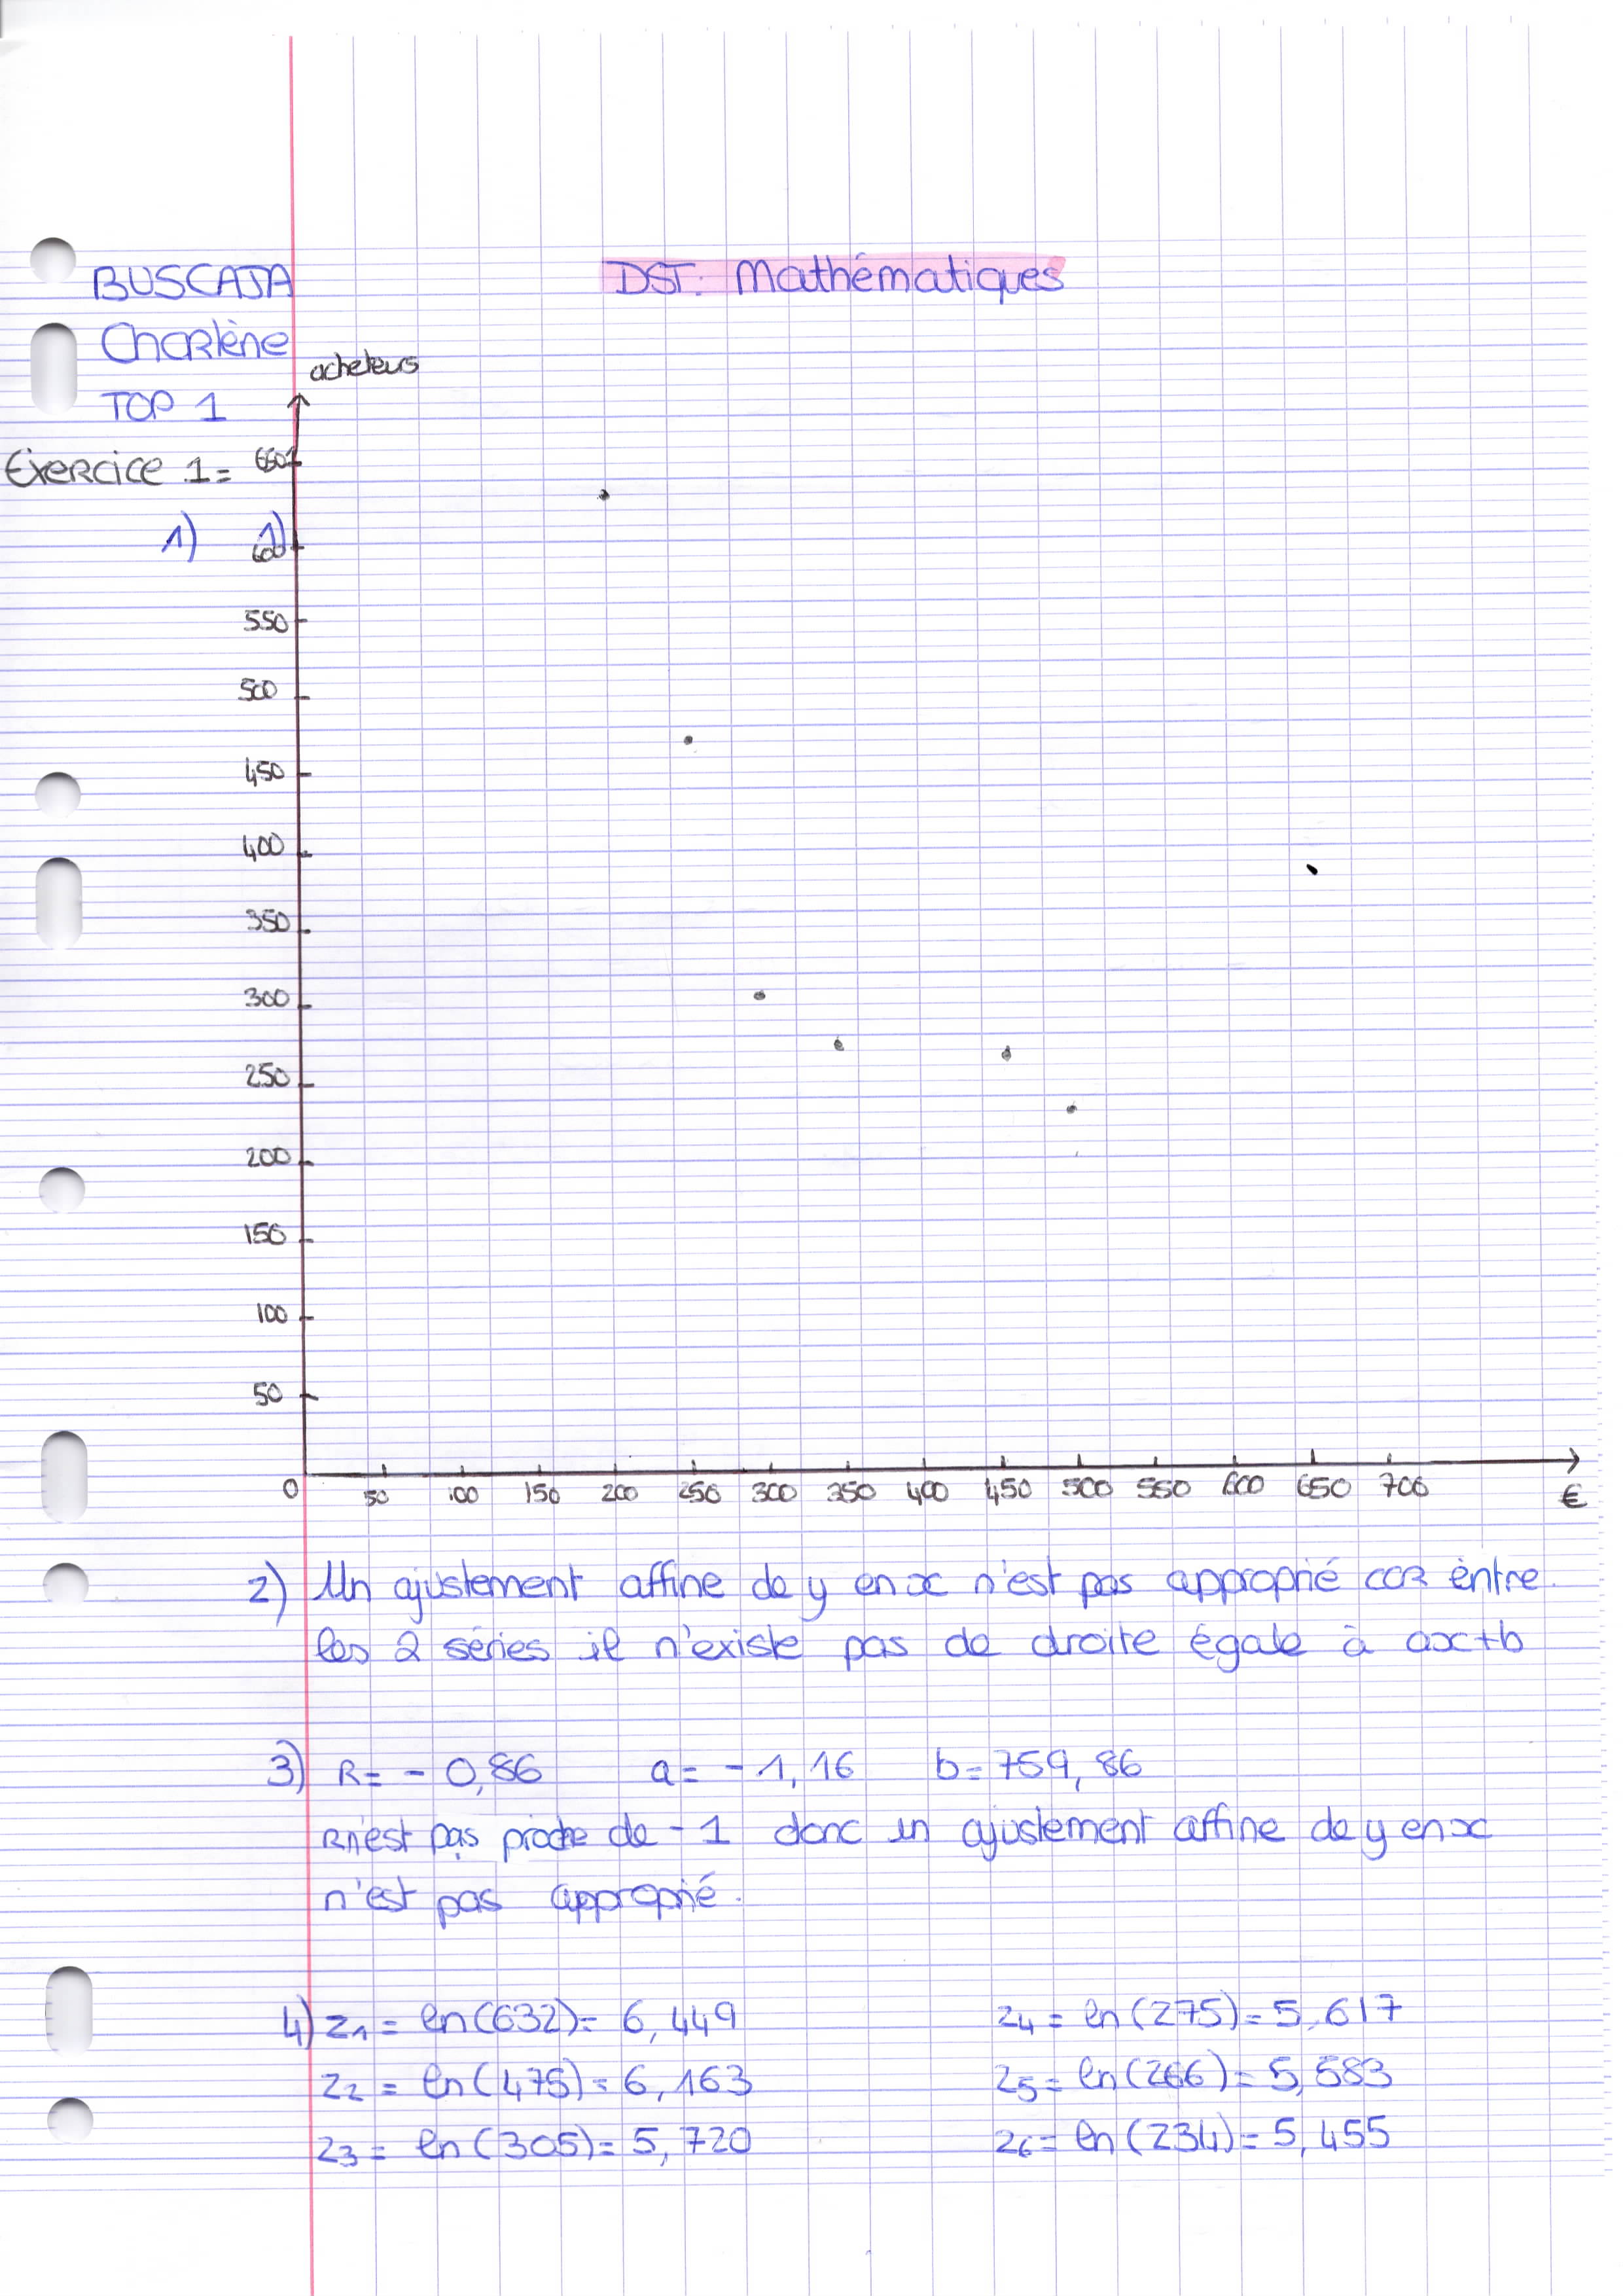 BUSCAJA
DST: Mathématiques
Charlène
TOP 1
acheteurs
Exercice 1 =
650
1) 1)
600
550
500
450
400
350
300
250
200
150
100
50
0 50 100 150 200 250 300 350 400 450 500 550 600 650 700
€
2) Un ajustement affine de y en x n'est pas approprié car entre
les 2 séries il n'existe pas de droite égale à ax+b
3) R= - 0,86 a= - 1,16 b= 759,86
R n'est pas proche de - 1 donc un ajustement affine de y en x
n'est pas approprié.
4) z1 = ln(632)= 6,449 z4 = ln(275)= 5,617
z2 = ln(475)= 6,163 z5 = ln(266)= 5,583
z3 = ln(305)= 5,720 z6 = ln(234)= 5,455